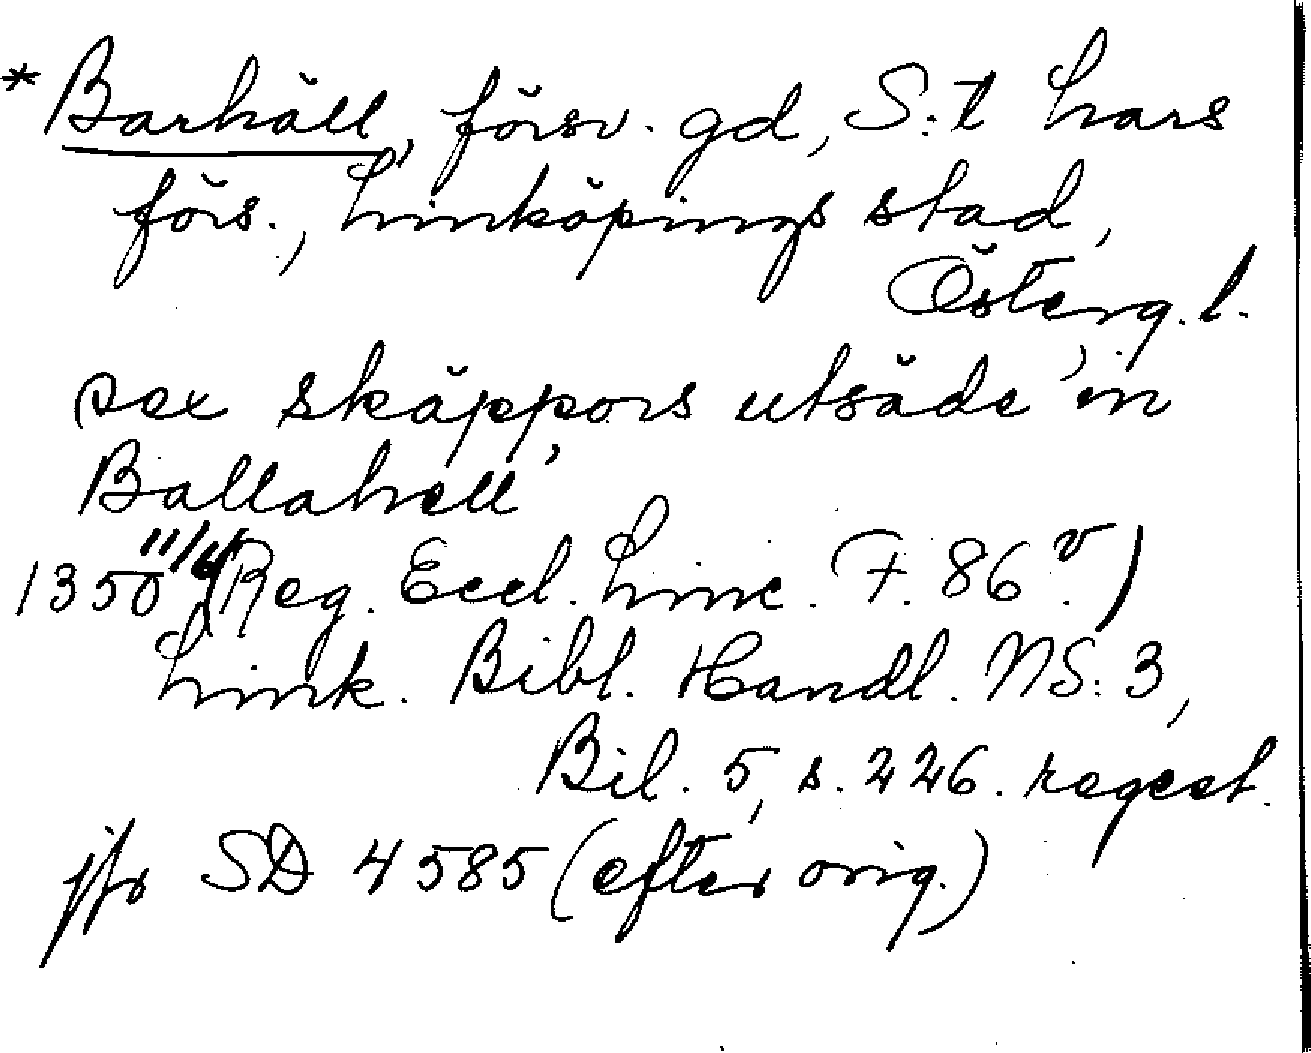 * Barhäll, försv. gd, S:t Lars
förs., Linköpings stad,
Österg.l.
sex skäppors utsäde 'in
Ballahell'
1350 11/4 (Reg. Eccl. Linc. F. 86 v.)
Link. Bibl. Handl. NS: 3,
Bil. 5, s. 226. regest.
jfr SD 4585 (efter orig.)